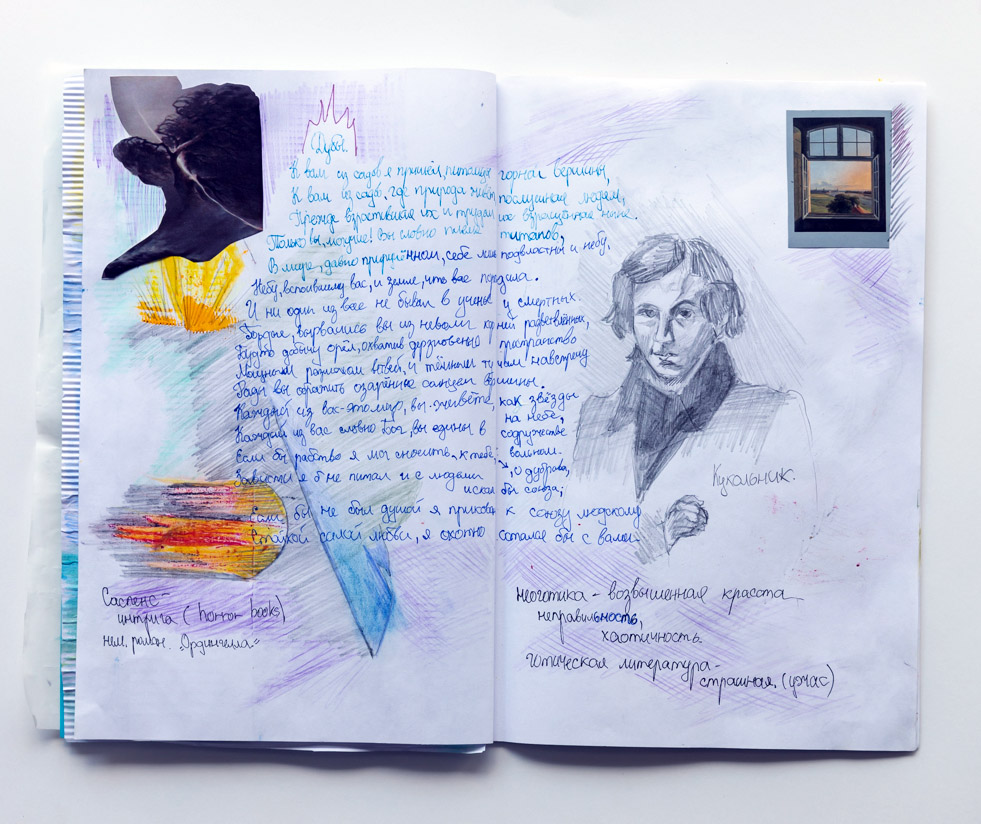 Дубы.
К вам из садов я пришёл, питомцы горной вершины,
К вам из садов, где природа живёт, послушная людям,
Прежде взрастившая их и трудами их взращённая ныне.
Только вы, могучие! Вы словно племя титанов,
В мире, давно приручённом, себе лишь подвластны и небу.
Небу, вспоившему вас, и земле, что вас породила.
И ни один из вас не бывал в ученье у смертных.
Гордые, вырвались вы из неволи корней разветвлённых,
Будто добычу орёл, охватив дерзновенно пространство
Мощным размахом ветвей, и тёмным тучам навстречу
Рады вы обратить озарённые солнцем вершины.
Каждый из вас-это мир, вы живёте, как звёзды
на небе,
Каждый из вас словно Бог, вы едины в содружестве
вольном.
Если бы рабство я мог сносить, к тебе, о дуброва,
Зависти я б не питал и с людьми
искал бы союза;
Если бы не был душой я прикован к союзу людскому
Стойкой самой любви, я охотно остался бы с вами.
Кукольник.
Саспенс-
интрига (horror books)
нем. роман.
неоготика - возвышенная красота
неправильность,
хаотичность.
готическая литература-
страшная. (ужас)